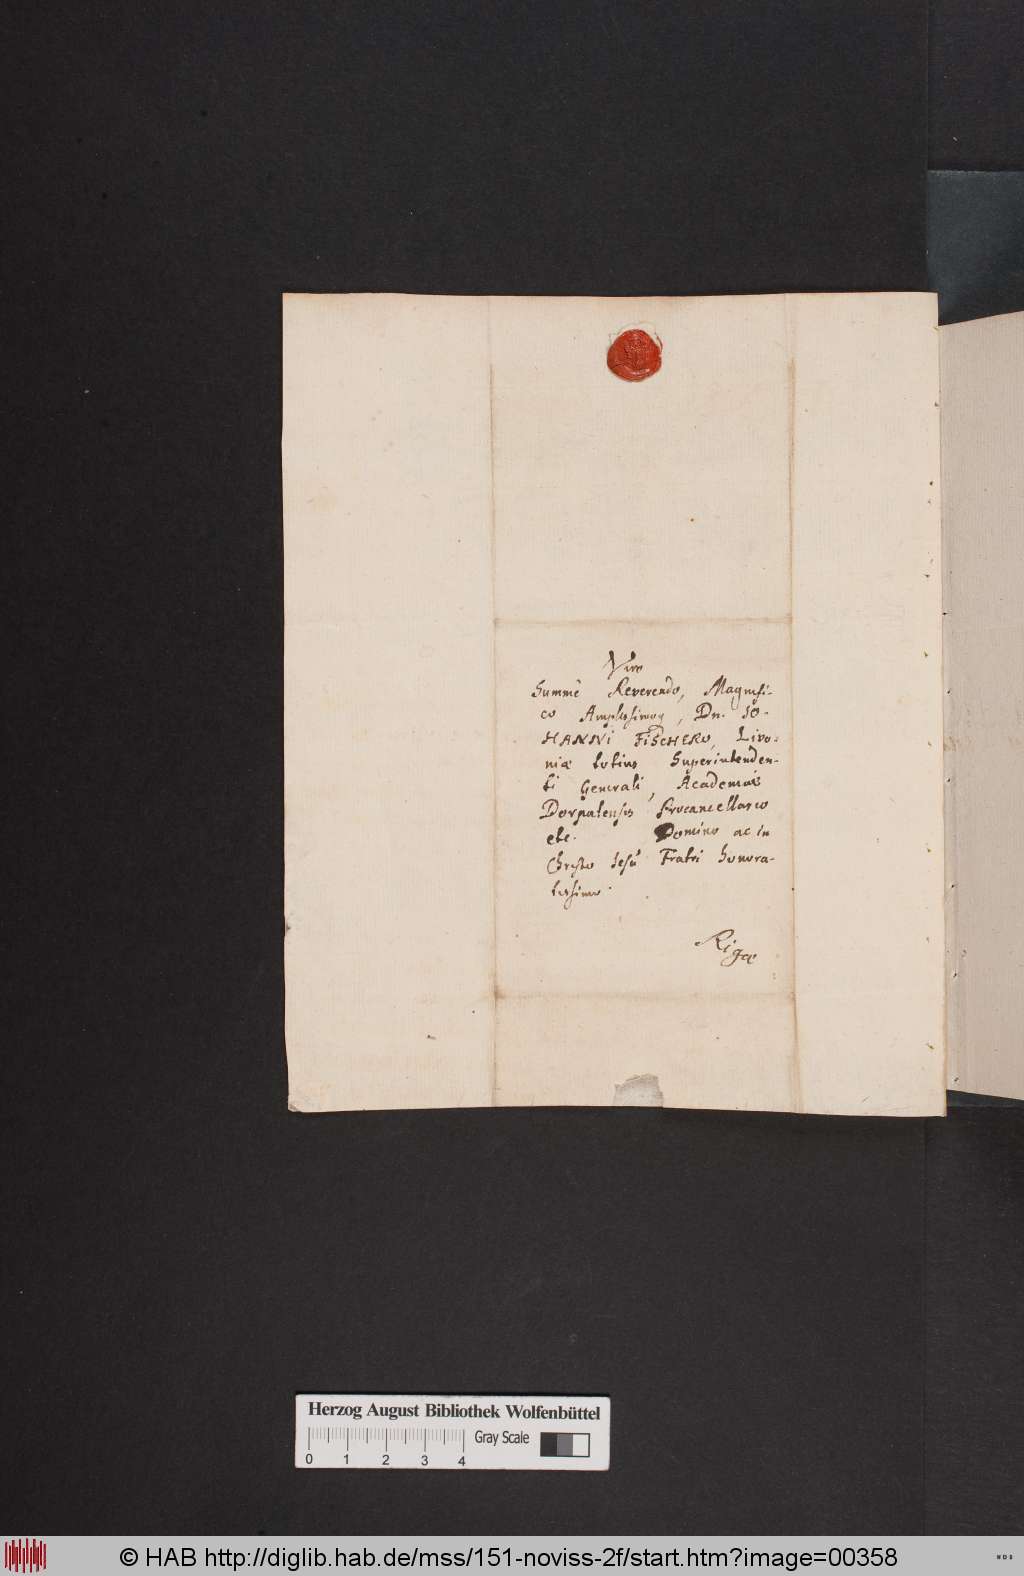 Viro
Summè Reverendo, Magnifi-
co Amplissimoq, Dn. JO-
HANNI FISCHERO, Livo-
niæ totius Superintenden-
ti Generali, Academiæ
Dorpatensis Procancellario
etc. Domino ac in
Christo Jesu Fratri honora-
tissimo.
Rigæ
Herzog August Bibliothek Wolfenbüttel
Gray Scale
0 1 2 3 4
© HAB http://diglib.hab.de/mss/151-noviss-2f/start.htm?image=00358